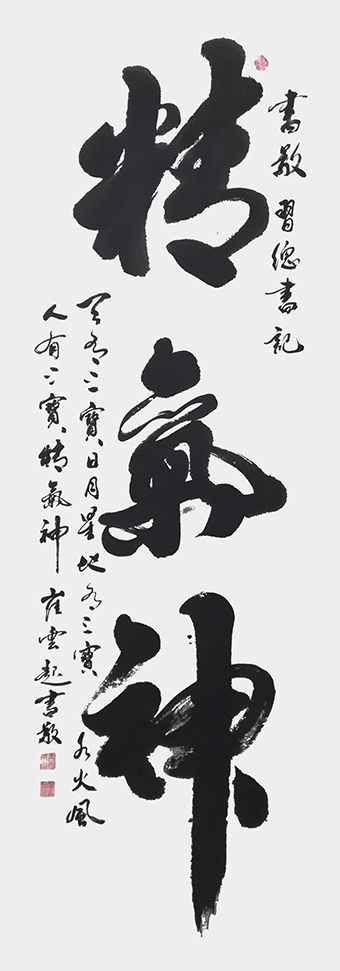 書敬習總書記
精氣神
天有三寶、日月星地有三寶水火風
人有三寶、精氣神 崔雲起書敬